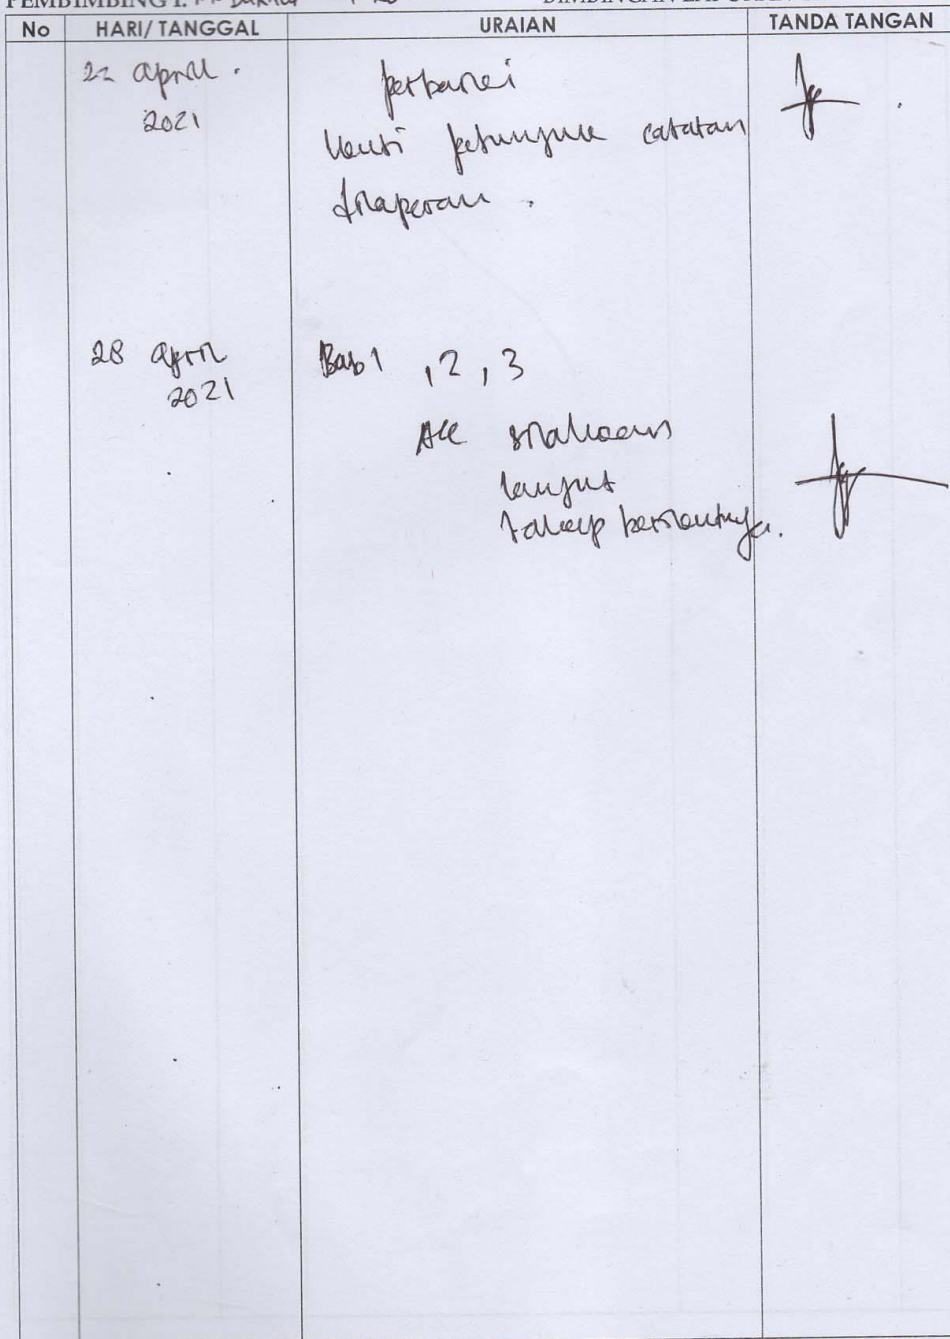 PEMBIMBING I.
No HARI/ TANGGAL URAIAN TANDA TANGAN
22 April. perbaiki
2021 ikuti petunjuk catatan
dilaporan.
28 April Bab 1, 2, 3
2021
Acc silahkan
lanjut
tahap berikutnya.